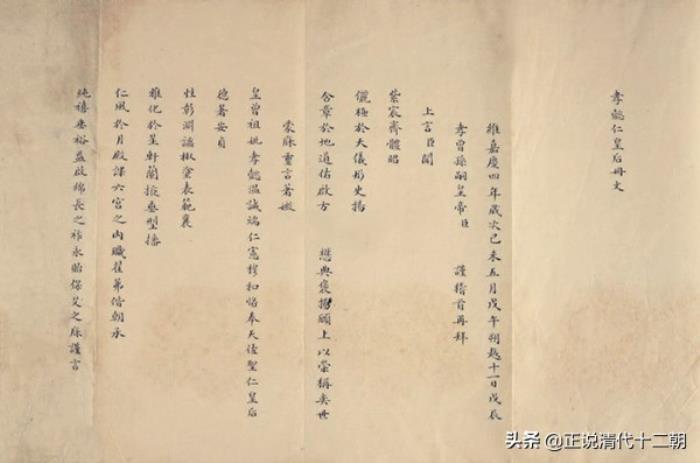 孝懿仁皇后册文
維嘉慶四年歲次己未五月戊午朔越十一日戊辰
孝曾孫嗣皇帝臣 謹稽首再拜
上言臣聞
紫宸齊體昭
儷極於天儀彤史揚
含章於地道佑啟方 懋典褒揚顧上以崇稱奕世
蒙庥重言著媺
皇曾祖妣孝懿溫誠端仁憲穆和恪奉天佐聖仁皇后
德著安貞
性彰淵謐椒塗表範襄
雍化於星軒蘭掖垂型播
仁風於月殿課六宮之內職翟茀偕朝承
純禧垂裕益啟綿長之祚永貽保艾之庥謹言
头条 @正说清代十二朝